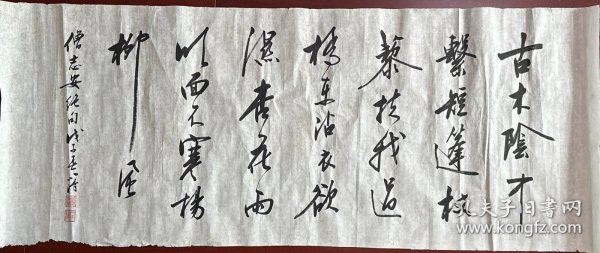 古木陰中
繫短篷杖
藜扶我過
橋東沾衣欲
濕杏花雨
吹面不寒楊
柳風
僧志安絕句戊子
孔夫子旧书网
www.kongfz.com